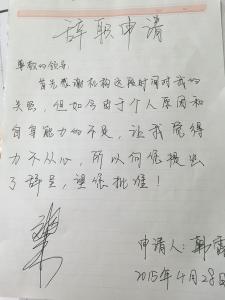 辞职申请
尊敬的领导:
首先感谢机构这段时间对我的
关照，但如今由于个人原因和
自身能力的不足，让我觉得
力不从心，所以向您提出
了辞呈，望您批准！
申请人：韩雷
2015年4月28日